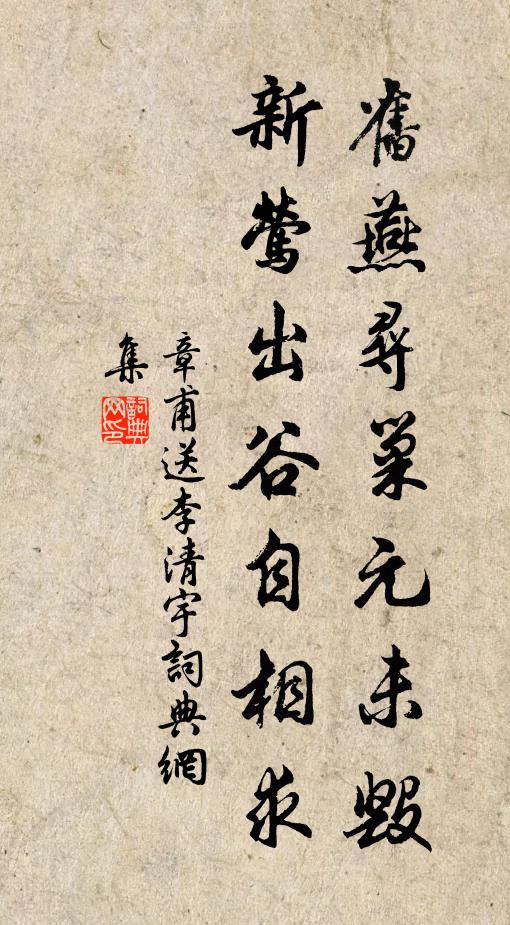 舊燕尋巢元未毀
新鶯出谷自相求
章甫送李清宇詞典網
集
詞典
网印